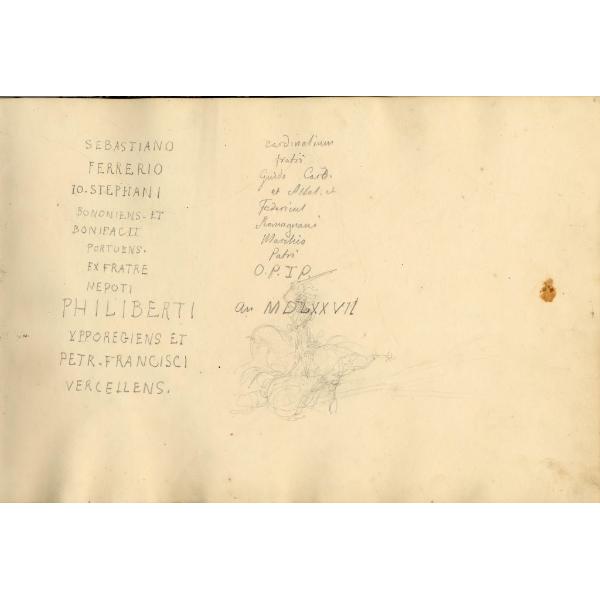 SEBASTIANO
FERRERIO
IO. STEPHANI
BONONIENS. ET
BONIFACII
PORTUENS.
EX FRATRE
NEPOTI
PHILIBERTI
YPPOREGIENS ET
PETR. FRANCISCI
VERCELLENS.
cardinalium
fratri
Guido Card.
et Abbat. et
Federicus
Romagnani
Marchio
Patri
O. P. I P.
an MDLXXVII